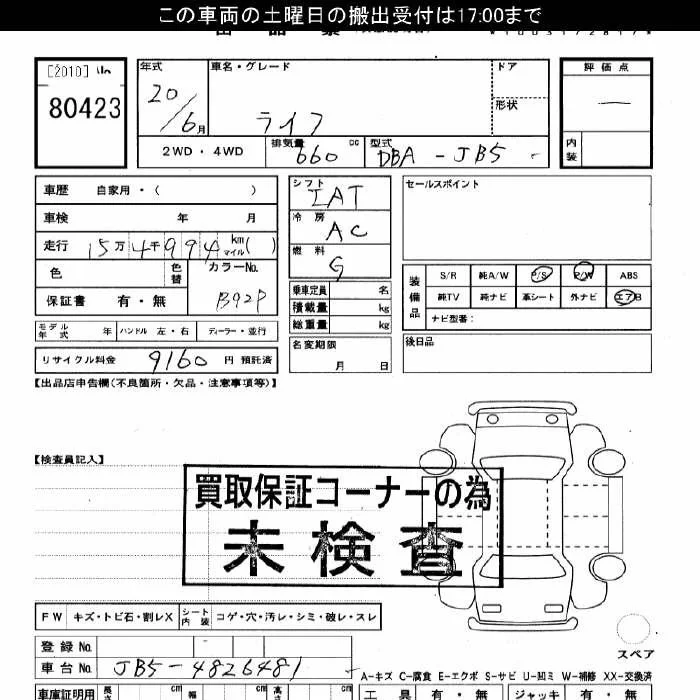 この車両の土曜日の搬出受付は17:00まで
[2010]
80423
年式
20/6月
車名・グレード
ライフ
ドア
形状
評価点
―
内装
2WD・4WD
排気量 660 cc
型式 DBA-JB5
車歴 自家用・( )
車検 年 月
走行 15万4千994 km マイル( )
色 色替
カラーNo. B92P
保証書 有・無
シフト IAT
冷房 AC
燃料 G
乗車定員 名
積載量 kg
総重量 kg
セールスポイント
装備品
S/R 純A/W P/S P/W ABS
純TV 純ナビ 革シート 外ナビ エアB
ナビ型番:
モデル年式 年 ハンドル 左・右 ディーラー・並行
リサイクル料金 9160 円 預託済
名変期限 月 日
後日品
【出品店申告欄(不良箇所・欠品・注意事項等)】
【検査員記入】
買取保証コーナーの為
未検査
FW キズ・トビ石・割レX シート内装 コゲ・穴・汚レ・シミ・破レ・スレ
スペア
登録No.
車台No. JB5-4826481
A-キズ C-腐食 E-エクボ S-サビ U-凹ミ W-補修 XX-交換済
車庫証明用 長さ cm 幅 cm 高さ cm
工具 有・無 ジャッキ 有・無